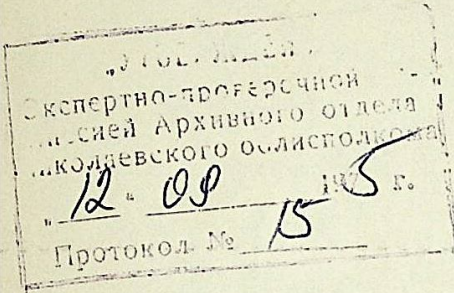 „УТВЕРЖДЕН"
Экспертно-проверочной
миссией Архивного отдела
Николаевского облисполкома
„12" 09 1975 г.
Протокол № 15